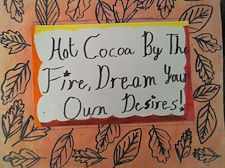 Hot Cocoa By The
Fire, Dream Your
Own Desires!